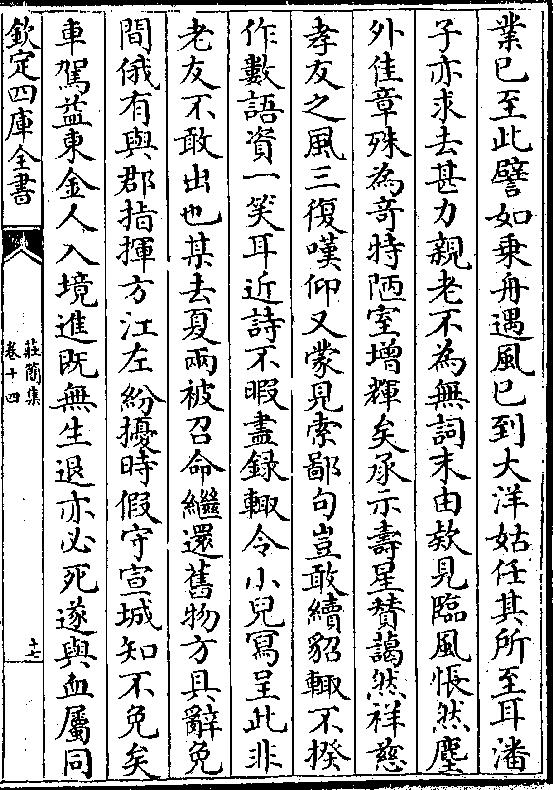 業已至此譬如乗舟遇風已到大洋姑任其所至耳潘
子亦求去甚力親老不為無詞末由欵見臨風悵然塵
外佳章殊為竒特陋室增輝矣承示壽星賛藹然祥慈
孝友之風三復嘆仰又蒙見索鄙句豈敢續貂輙不揆
作數語資一笑耳近詩不暇盡録輙令小兒冩呈此非
老友不敢出也某去夏兩被召命繼還舊物方具辭免
間俄有與郡指揮方江左紛擾時假守宣城知不免矣
車駕益東金人入境進既無生退亦必死遂與血屬同
欽定四庫全書
莊簡集
卷十四